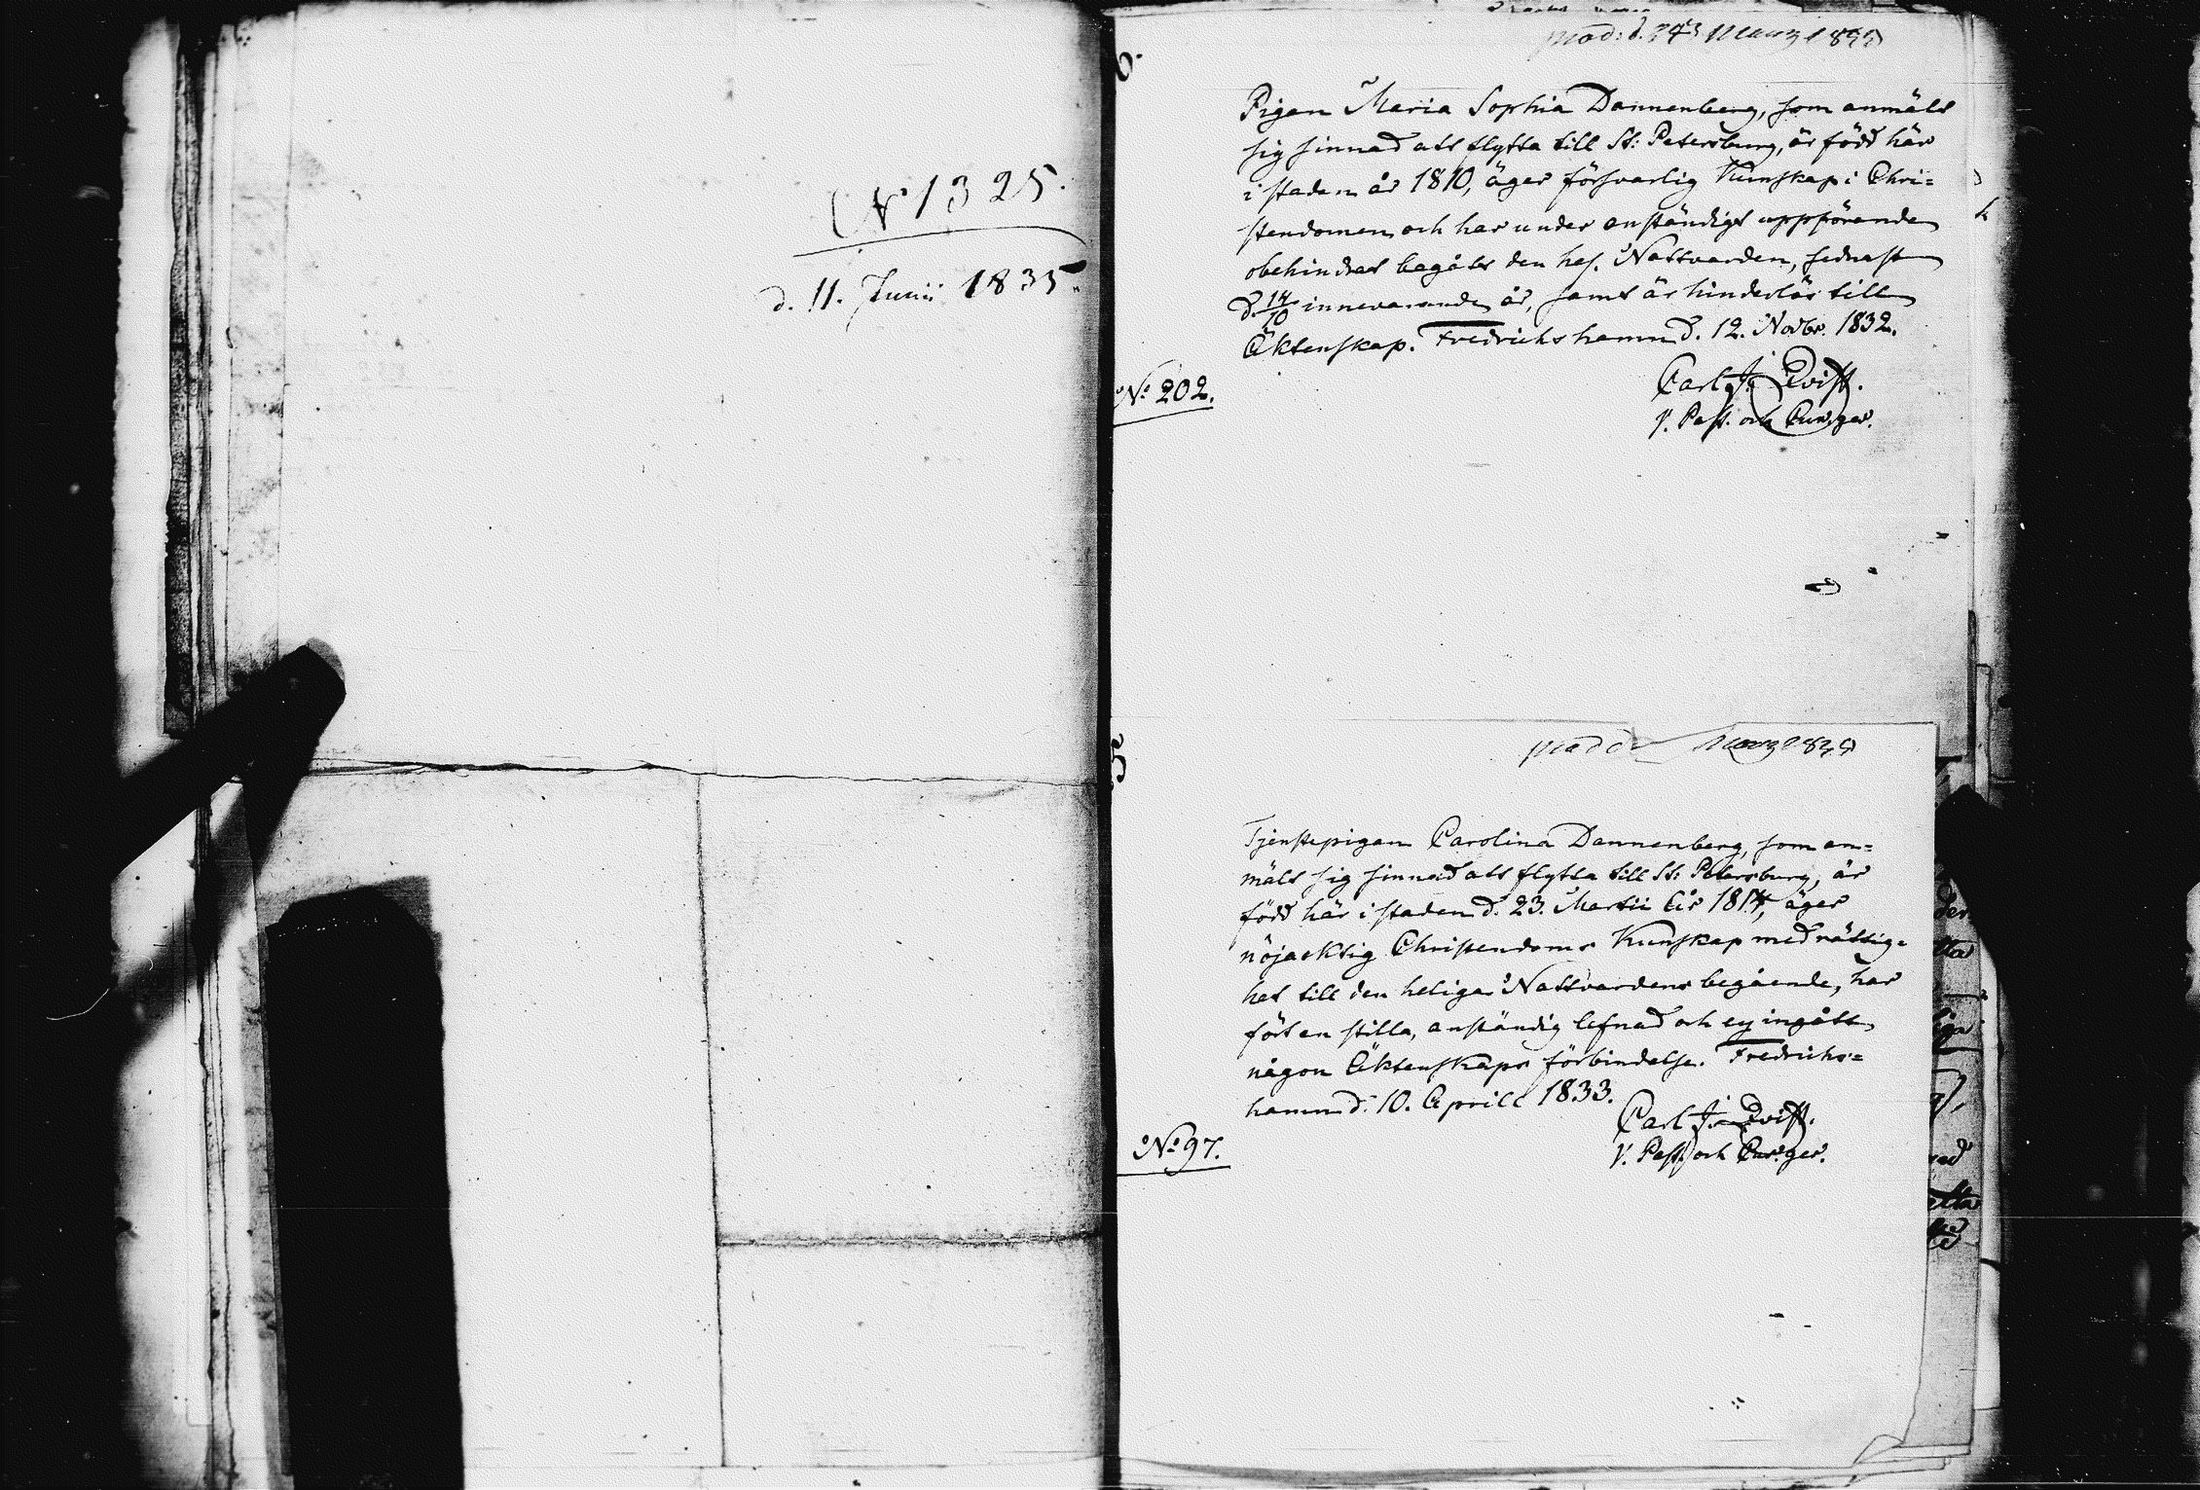 N 1325.
d. 11. Junii 1835.
prod. d. 24 Marz 1833
Pigan Maria Sophia Dannenberg, som anmält
sig sinnad att flytta till St: Petersburg, är född här
i staden år 1810, äger försvarlig Kunskap i Chri=
stendomen och har under anständigt uppförande
obehindrat begått den hel. Nattvarden, sednast
d. 14/10 innevarande år, samt är hinderlös till
Äktenskap. Fredrichshamn d. 12. Novbr. 1832.
Carl J. Qvist.
V. Past. och Cur. ger.
No 202.
Marz 1835
Tjenstepigan Carolina Dannenberg, som an=
mält sig sinnad att flytta till St: Petersburg, är
född här i staden d. 23. Martii år 1814, äger
nöjacktig Christendoms Kunskap med rättig=
het till den heliga Nattvardens begående, har
fört en stilla, anständig lefnad och ej ingått
någon Äktenskaps förbindelse. Fredrichs=
hamn d. 10. Aprill 1833.
Carl J. Qvist.
V. Past. och Cur. ger.
No 97.